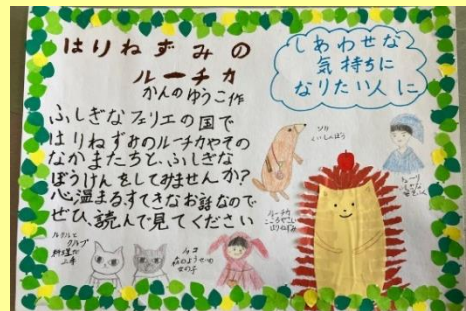 はりねずみの
ルーチカ
かんのゆうこ作
しあわせな
気持ちに
なりたい人に
ふしぎなフェリエの国で
はりねずみのルーチカやその
なかまたちと、ふしぎな
ぼうけんをしてみませんか?
心温まるすてきなお話なので
ぜひ、読んで見てください
ソル
くいしんぼう
ルーチカ
はりねずみ
ニコ
森のようせいの
女の子
料理が
上手